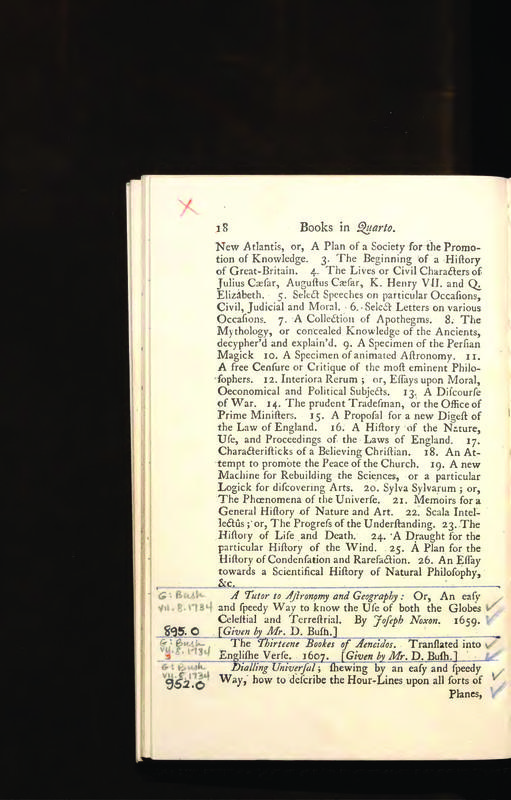 18 Books in Quarto.
New Atlantis, or, A Plan of a Society for the Promo-
tion of Knowledge. 3. The Beginning of a Hiſtory
of Great-Britain. 4. The Lives or Civil Characters of
Julius Cæſar, Auguſtus Cæſar, K. Henry VII. and Q.
Elizabeth. 5. Select Speeches on particular Occaſions,
Civil, Judicial and Moral. 6. Select Letters on various
Occaſions. 7. A Collection of Apothegms. 8. The
Mythology, or concealed Knowledge of the Ancients,
decypher'd and explain'd. 9. A Specimen of the Perſian
Magick 10. A Specimen of animated Aſtronomy. 11.
A free Cenſure or Critique of the moſt eminent Philo-
ſophers. 12. Interiora Rerum; or, Eſſays upon Moral,
Oeconomical and Political Subjects. 13. A Diſcourſe
of War. 14. The prudent Tradeſman, or the Office of
Prime Miniſters. 15. A Propoſal for a new Digeſt of
the Law of England. 16. A Hiſtory of the Nature,
Uſe, and Proceedings of the Laws of England. 17.
Characteriſticks of a Believing Chriſtian. 18. An At-
tempt to promote the Peace of the Church. 19. A new
Machine for Rebuilding the Sciences, or a particular
Logick for diſcovering Arts. 20. Sylva Sylvarum; or,
The Phœnomena of the Univerſe. 21. Memoirs for a
General Hiſtory of Nature and Art. 22. Scala Intel-
lectûs; or, The Progreſs of the Underſtanding. 23. The
Hiſtory of Life and Death. 24. A Draught for the
particular Hiſtory of the Wind. 25. A Plan for the
Hiſtory of Condenſation and Rarefaction. 26. An Eſſay
towards a Scientifical Hiſtory of Natural Philoſophy,
&c.
G: Bush A Tutor to Aſtronomy and Geography: Or, An eaſy
VII.8.1734 and ſpeedy Way to know the Uſe of both the Globes
Celeſtial and Terreſtrial. By Joſeph Noxon. 1659.
895.0 [Given by Mr. D. Buſh.]
G: Bush The Thirteene Bookes of Aencidos. Tranſlated into
VII.8.1734 Engliſhe Verſe. 1607. [Given by Mr. D. Buſh.]
G: Bush Dialling Univerſal; ſhewing by an eaſy and ſpeedy
VII.8.1734
952.0 Way, how to deſcribe the Hour-Lines upon all ſorts of
Planes,